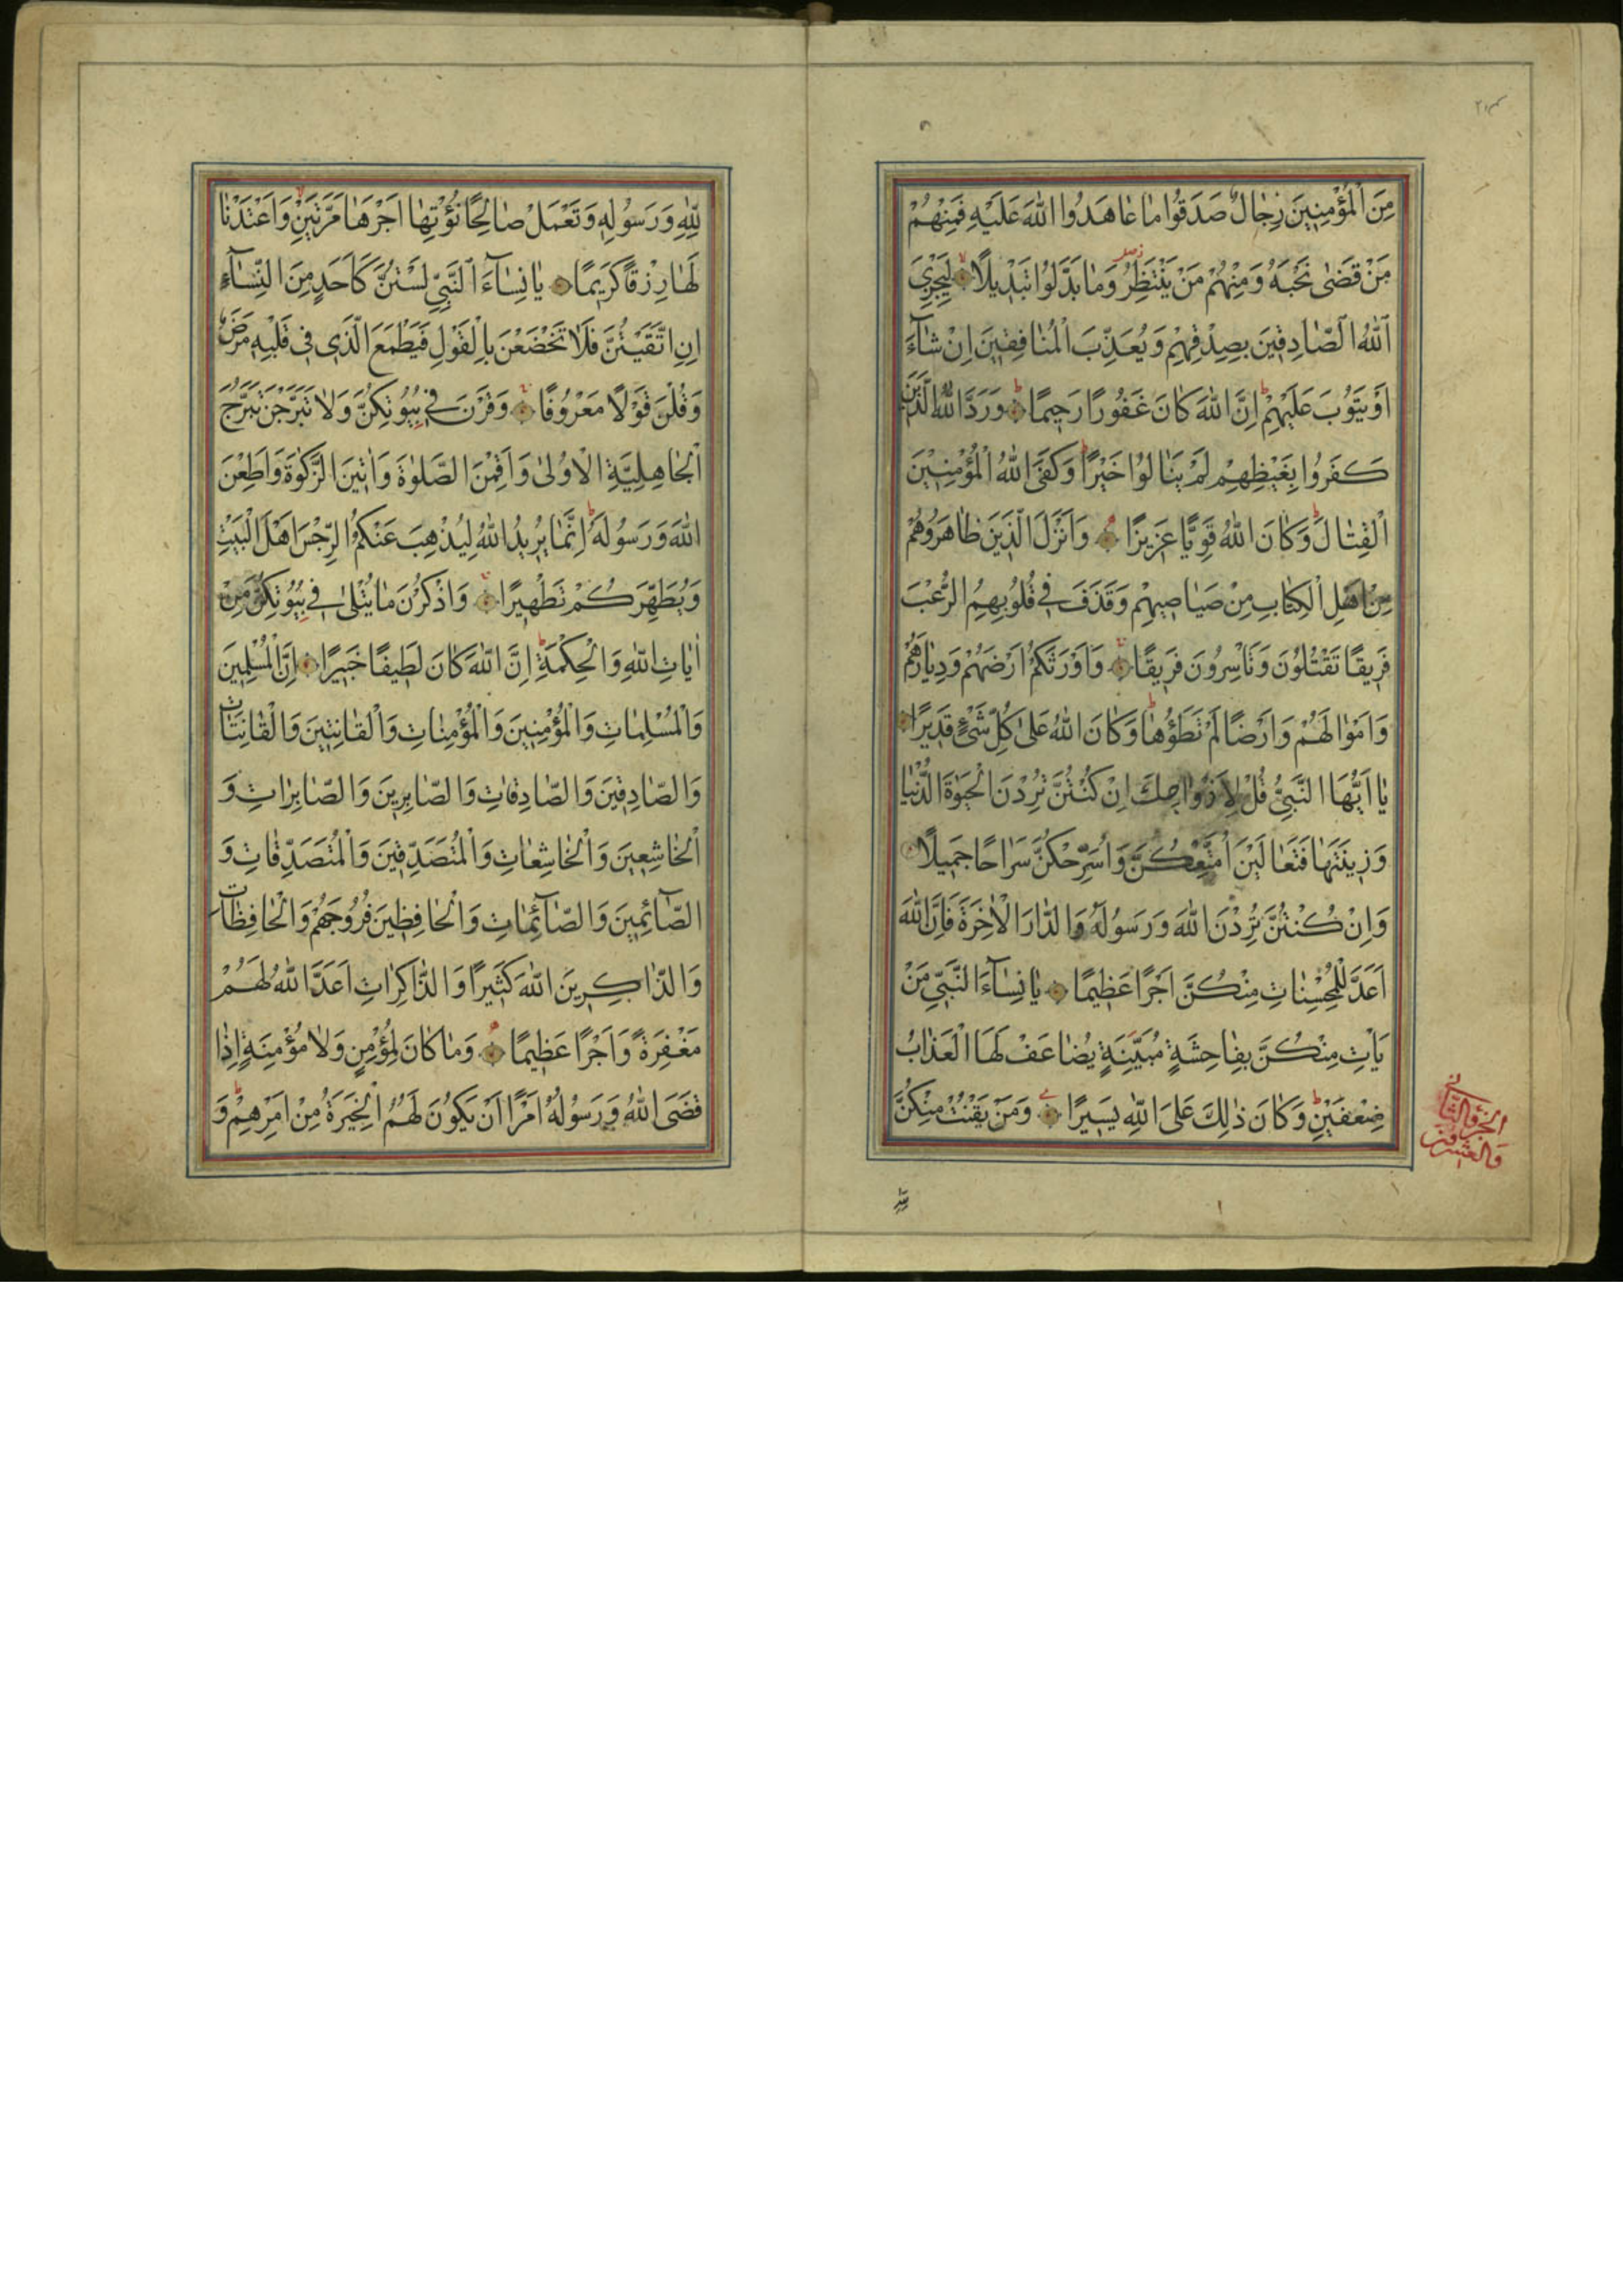 مِنَ الْمُؤْمِنِينَ رِجَالٌ صَدَقُوا مَا عَاهَدُوا اللّٰهَ عَلَيْهِ فَمِنْهُمْ
مَنْ قَضٰى نَحْبَهُ وَمِنْهُمْ مَنْ يَنْتَظِرُ وَمَا بَدَّلُوا تَبْدِيلًا لِيَجْزِيَ
اَللّٰهُ الصَّادِقِينَ بِصِدْقِهِمْ وَيُعَذِّبَ الْمُنَافِقِينَ اِنْ شَآءَ
اَوْ يَتُوبَ عَلَيْهِمْ اِنَّ اللّٰهَ كَانَ غَفُورًا رَحِيمًا وَرَدَّ اللّٰهُ الَّذِينَ
كَفَرُوا بِغَيْظِهِمْ لَمْ يَنَالُوا خَيْرًا وَكَفَى اللّٰهُ الْمُؤْمِنِينَ
الْقِتَالَ وَكَانَ اللّٰهُ قَوِيًّا عَزِيزًا وَاَنْزَلَ الَّذِينَ ظَاهَرُوهُمْ
مِنْ اَهْلِ الْكِتَابِ مِنْ صَيَاصِيهِمْ وَقَذَفَ فِي قُلُوبِهِمُ الرُّعْبَ
فَرِيقًا تَقْتُلُونَ وَتَأْسِرُونَ فَرِيقًا وَاَوْرَثَكُمْ اَرْضَهُمْ وَدِيَارَهُمْ
وَاَمْوَالَهُمْ وَاَرْضًا لَمْ تَطَؤُهَا وَكَانَ اللّٰهُ عَلٰى كُلِّ شَيْءٍ قَدِيرًا
يَا اَيُّهَا النَّبِيُّ قُلْ لِاَزْوَاجِكَ اِنْ كُنْتُنَّ تُرِدْنَ الْحَيٰوةَ الدُّنْيَا
وَزِينَتَهَا فَتَعَالَيْنَ اُمَتِّعْكُنَّ وَاُسَرِّحْكُنَّ سَرَاحًا جَمِيلًا
وَاِنْ كُنْتُنَّ تُرِدْنَ اللّٰهَ وَرَسُولَهُ وَالدَّارَ الْاٰخِرَةَ فَاِنَّ اللّٰهَ
اَعَدَّ لِلْمُحْسِنَاتِ مِنْكُنَّ اَجْرًا عَظِيمًا يَا نِسَآءَ النَّبِيِّ مَنْ
يَأْتِ مِنْكُنَّ بِفَاحِشَةٍ مُبَيِّنَةٍ يُضَاعَفْ لَهَا الْعَذَابُ
ضِعْفَيْنِ وَكَانَ ذٰلِكَ عَلَى اللّٰهِ يَسِيرًا وَمَنْ يَقْنُتْ مِنْكُنَّ
الجزؤ الثاني
والعشرون
لِلّٰهِ
لِلّٰهِ وَرَسُولِهِ وَتَعْمَلْ صَالِحًا نُؤْتِهَا اَجْرَهَا مَرَّتَيْنِ وَاَعْتَدْنَا
لَهَا رِزْقًا كَرِيمًا يَا نِسَآءَ النَّبِيِّ لَسْتُنَّ كَاَحَدٍ مِنَ النِّسَآءِ
اِنِ اتَّقَيْتُنَّ فَلَا تَخْضَعْنَ بِالْقَوْلِ فَيَطْمَعَ الَّذِي فِي قَلْبِهِ مَرَضٌ
وَقُلْنَ قَوْلًا مَعْرُوفًا وَقَرْنَ فِي بُيُوتِكُنَّ وَلَا تَبَرَّجْنَ تَبَرُّجَ
الْجَاهِلِيَّةِ الْاُولٰى وَاَقِمْنَ الصَّلٰوةَ وَاٰتِينَ الزَّكٰوةَ وَاَطِعْنَ
اللّٰهَ وَرَسُولَهُ اِنَّمَا يُرِيدُ اللّٰهُ لِيُذْهِبَ عَنْكُمُ الرِّجْسَ اَهْلَ الْبَيْتِ
وَيُطَهِّرَكُمْ تَطْهِيرًا وَاذْكُرْنَ مَا يُتْلٰى فِي بُيُوتِكُنَّ مِنْ
اٰيَاتِ اللّٰهِ وَالْحِكْمَةِ اِنَّ اللّٰهَ كَانَ لَطِيفًا خَبِيرًا اِنَّ الْمُسْلِمِينَ
وَالْمُسْلِمَاتِ وَالْمُؤْمِنِينَ وَالْمُؤْمِنَاتِ وَالْقَانِتِينَ وَالْقَانِتَاتِ
وَالصَّادِقِينَ وَالصَّادِقَاتِ وَالصَّابِرِينَ وَالصَّابِرَاتِ وَ
الْخَاشِعِينَ وَالْخَاشِعَاتِ وَالْمُتَصَدِّقِينَ وَالْمُتَصَدِّقَاتِ وَ
الصَّآئِمِينَ وَالصَّآئِمَاتِ وَالْحَافِظِينَ فُرُوجَهُمْ وَالْحَافِظَاتِ
وَالذَّاكِرِينَ اللّٰهَ كَثِيرًا وَالذَّاكِرَاتِ اَعَدَّ اللّٰهُ لَهُمْ
مَغْفِرَةً وَاَجْرًا عَظِيمًا وَمَا كَانَ لِمُؤْمِنٍ وَلَا مُؤْمِنَةٍ اِذَا
قَضَى اللّٰهُ وَرَسُولُهُ اَمْرًا اَنْ يَكُونَ لَهُمُ الْخِيَرَةُ مِنْ اَمْرِهِمْ وَ